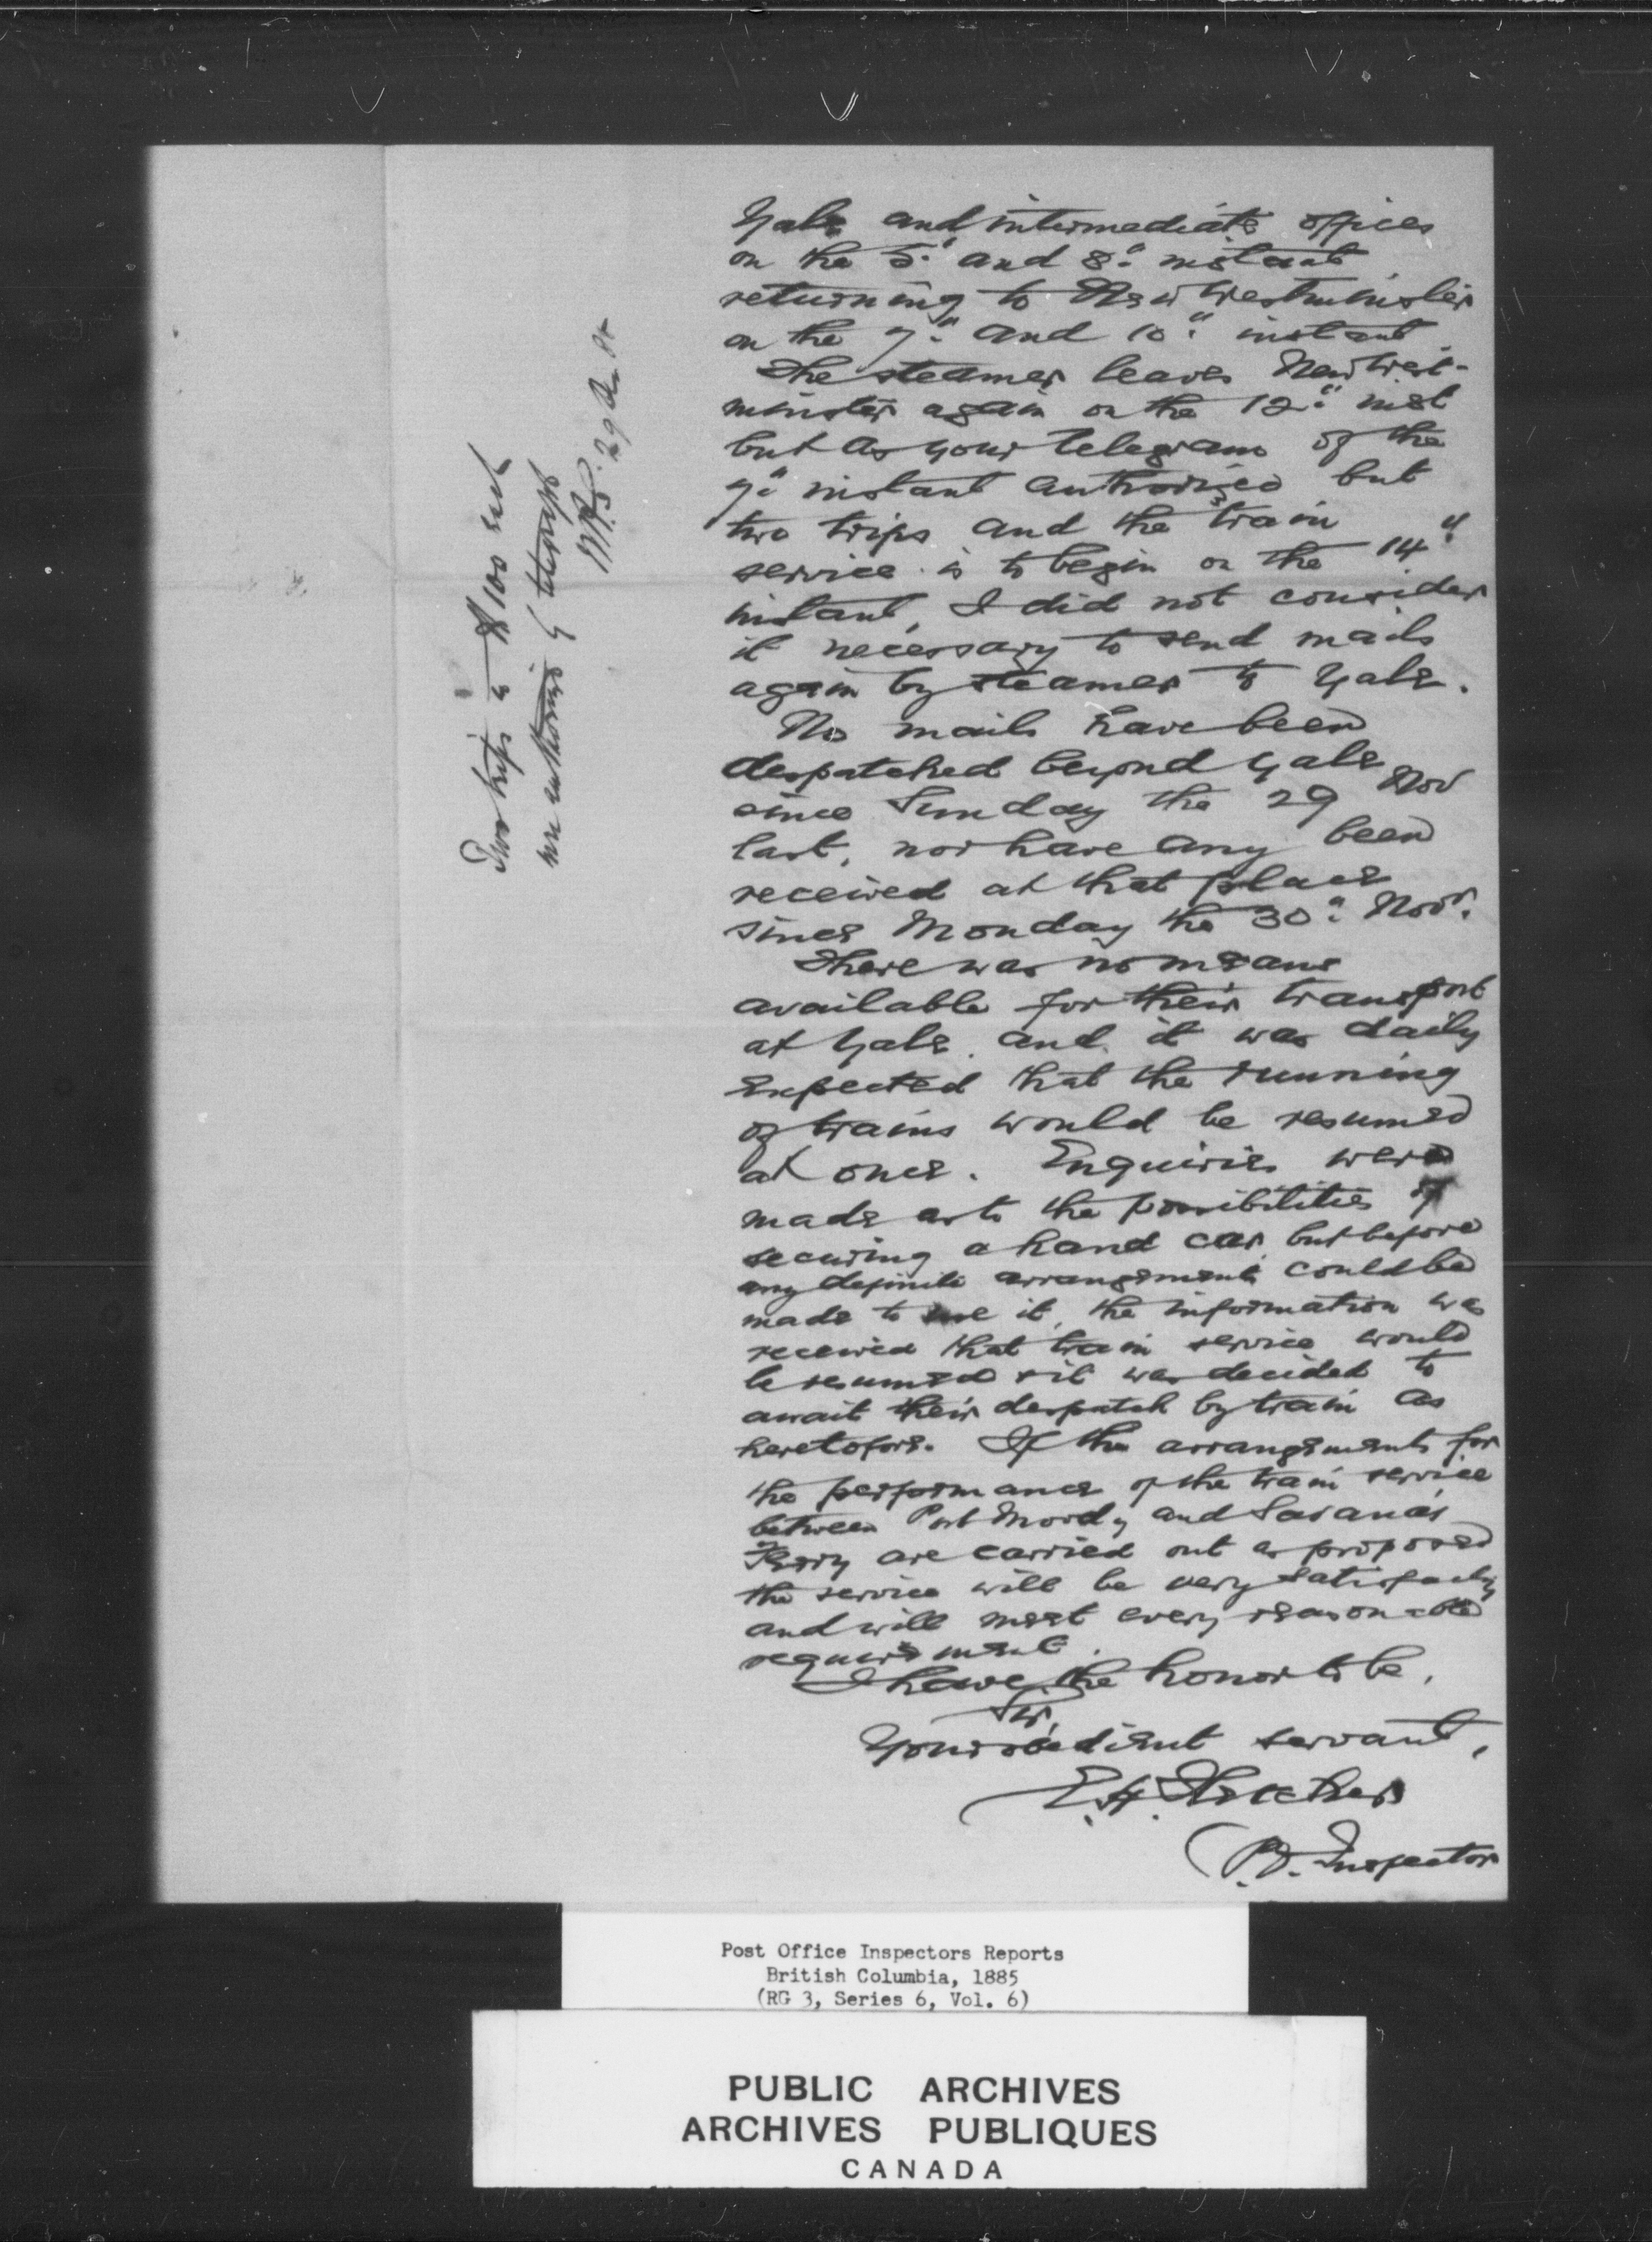 Yale and intermediate offices
on the 5" and 8" instant
returning to New Westminster
on the 7" and 10" instant
The steamer leaves New West-
minster again on the 12" inst
but as your telegram of the
7" instant authorized but
two trips and the train
service is to begin on the 14"
instant, I did not consider
it necessary to send mails
again by steamer to Yale.
No mails have been
despatched beyond Yale
since Sunday the 29 Nov
last, nor have any been
received at that place
since Monday the 30" Novr.
There was no means
available for their transport
at Yale and it was daily
expected that the running
of trains would be resumed
at once. Enquiries were
made as to the possibilities of
securing a hand car but before
any definite arrangements could be
made to use it, the information was
received that train service would
be resumed & it was decided to
await their despatch by train as
heretofore. If the arrangements for
the performance of the train service
between Port Moody and Savana's
Ferry are carried out as proposed
the service will be very satisfactory
and will meet every reasonable
requirement.
I have the honor to be,
Sir,
Your obedient servant,
E.H. Fletcher
P.O. Inspector
Two trips a $100 each
were authorized by telegraph
29
Post Office Inspectors Reports
British Columbia, 1885
(RG 3, Series 6, Vol. 6)
PUBLIC ARCHIVES
ARCHIVES PUBLIQUES
CANADA